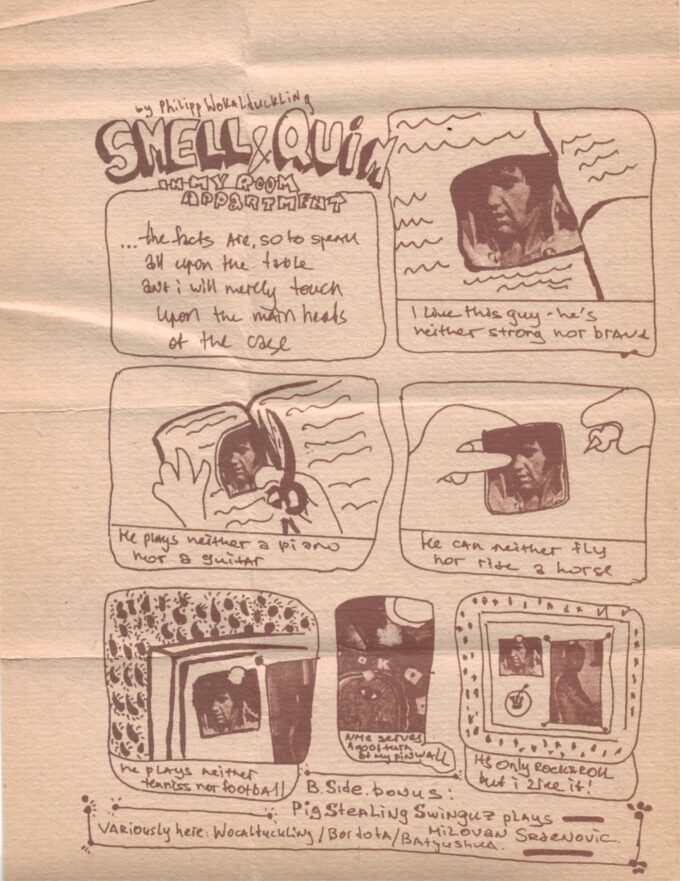 by PHilipp WokAltuckling
SMELL & QUiM
iN MY ROOM
APPARTMENT
...the facts ARE, so to speak
all upon the table
ant i will merely touch
upon the main heats
of the case
I Like this guy - he's
neither strong nor brave
He plays neither a piano
nor a guitar
He can neither fly
nor rite a horse
he plays neither
tenniss nor football
K
NME serves
A good turn
of my pinWALL
It's Only Rock&Roll
but i Like it!
B.Side.bonus:
Pig Stealing Swinguz plays
VARiously here: Wocaltuckling / Bordota / Batyushka.
MiLOVAN SRDENOVIC.